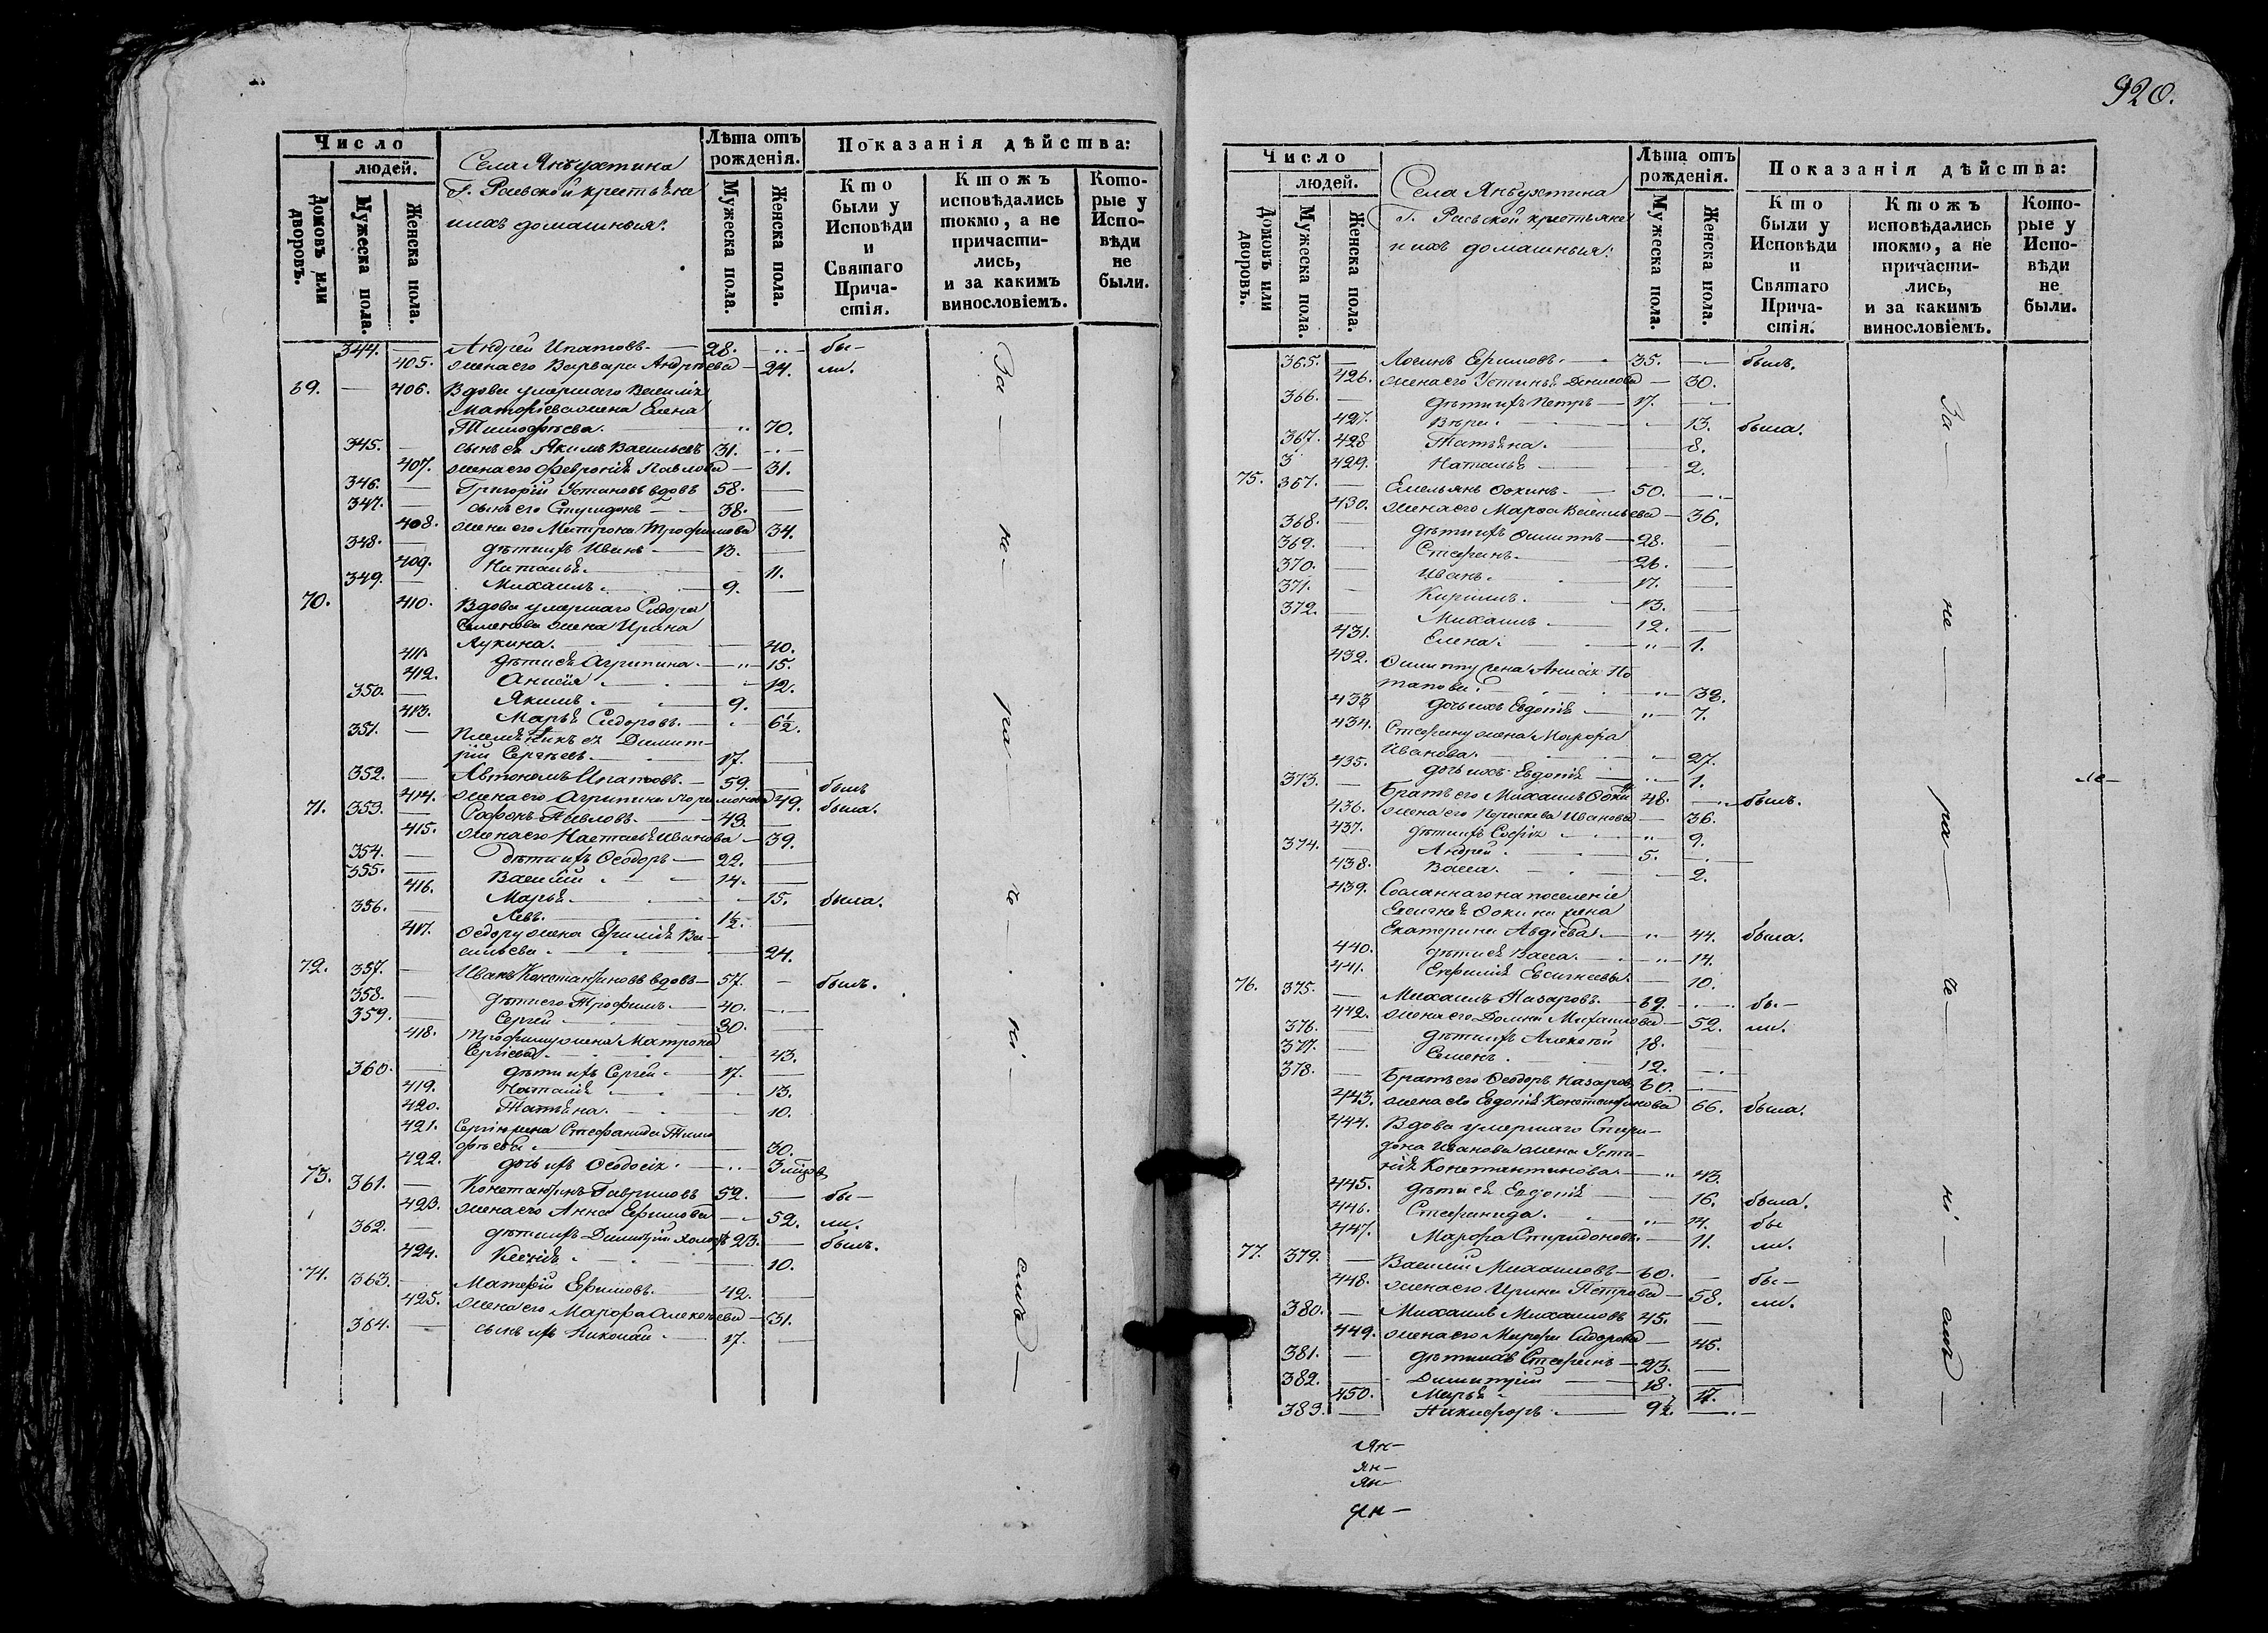 920.
Число
людей.
Домовъ или дворовъ.
Мужеска пола.
Женска пола.
Села Янбухтина
Г. Раевской крестьяне
и ихъ домашныя:
Лѣта отъ рожденія.
Мужеска пола.
Женска пола.
Показанія дѣйства:
Кто были у Исповѣди и Святаго Причастія.
Ктожъ исповѣдались токмо, а не причастились, и за какимъ винословіемъ.
Которые у Исповѣди не были.
344. — Андрей Ипатовъ. — 28. — бы-
405. жена его Варвара Андреева — 24. ли.
69. — 406. Вдова умершаго Василія
Матфіева жена Елена
Тимофѣева. — 70.
345. — сынъ ея Якимъ Васильевъ 31. —
407. жена его Февронія Павлова — 31.
346. — Григорій Устиновъ вдовъ 58. —
347. — сынъ его Спиридонъ — 38. —
408. жена его Матрона Трофимова 34.
348. — дѣти ихъ Иванъ — 13. —
409. Наталья. — 11.
349. — Михаилъ. — 9. —
70. 410. Вдова умершаго Сидора
Семенова жена Ирина
Лукина. — 40.
411. дѣти ея Агрипина. — 15.
412. Анисія. — 12.
350. — Якимъ. — 9. —
413. Марья Сидоровы. — 6½.
351. — Племянникъ ея Димит-
рій Сергѣевъ. — 17. —
352. — Автономъ Ипатовъ. — 59. — былъ
414. жена его Агрипина 49. была.
71. 353. — Софонъ Павловъ — 43 —
415. жена его Настасья Иванова — 39.
354. — дѣти ихъ Ѳеодоръ — 22. —
355. — Василій. — 14. —
416. Марья. — 15. была.
356. — Левъ. — 1½. —
417. Ѳедору жена Ефимія Ва-
сильева. — 24.
72. 357. — Иванъ Константиновъ вдовъ — 57. — былъ.
358. — дѣти его Трофимъ. — 40. —
359. — Сергей — 30. —
418. Трофиму жена Матрона
Сергіева. — 43.
360. — дѣти ихъ Сергей. — 17. —
419. Наталія — 13.
420. Татьяна. — 10.
421. Сергію жена Стефанида Тимо
фѣева. — 30.
422. дочь ихъ Ѳеодосія. — 3
73. 361. — Константинъ Гавриловъ 52. — бы-
423. жена его Анна Ефимова — 52. ли.
362. — дѣти ихъ Димитрій холостъ 23. — былъ.
424. Ксенія. — 10.
74. 363. — Матфій Ефимовъ. — 42. —
425. жена его Марфа Алексѣева — 31.
364. — сынъ ихъ Николай. — 17. —
За — не — ра — че — ні — емъ —
Число
людей.
Домовъ или дворовъ.
Мужеска пола.
Женска пола.
Села Янбухтина
Г. Раевской крестьяне
и ихъ домашныя:
Лѣта отъ рожденія.
Мужеска пола.
Женска пола.
Показанія дѣйства:
Кто были у Исповѣди и Святаго Причастія.
Ктожъ исповѣдались токмо, а не причастились, и за какимъ винословіемъ.
Которые у Исповѣди не были.
365. — Логинъ Ефимовъ. — 35. — былъ.
426. жена его Устинья Денисова — 30.
366. — дѣти ихъ Петръ — 17. —
427. Вѣра. — 13. была.
367. 428 Татьяна. — 8.
3 429. Наталья — 2.
75. 367. — Емельянъ Ѳокинъ. — 50. —
430. жена его Марѳа Васильева — 36.
368. — дѣти ихъ Филиппъ — 28. —
369. — Стефанъ. — 26. —
370. — Иванъ. — 17. —
371. — Кирилъ. — 13. —
372. — Михаилъ — 12. —
431. Елена. — 1.
432. Филиппу жена Анисія По
тапова. — 32.
433 дочь ихъ Евдокія — 7.
434. Стефану жена Марфа
Иванова. — 27.
435. дочь ихъ Евдокія — 1.
373. — Братъ его Михаилъ Ѳокинъ 48. — былъ.
436. жена его Параскева Иванова — 36.
437. дѣти ихъ Софія — 9.
374. — Андрей — 5. —
438. Васса. — 2.
439. Сосланнаго на поселеніе
Евсигнея Ѳокина жена
Екатерина Авдіева. — 44. была.
440. дѣти ея Васса. — 14.
441. Ефимія Евсигнеевы. — 10.
76. 375. — Михаилъ Назаровъ. — 69. — бы-
442. жена его Домна Михаилова — 52. ли.
376. — дѣти ихъ Алексѣй 18. —
377. — Семенъ. — 12. —
378. — Братъ его Ѳеодоръ Назаров. 60. —
443. жена его Евдокія Константинова 66. была.
444. Вдова умершаго Спири-
дона Иванова жена Усти-
нія Константинова. — 43.
445. дѣти ея Евдокія — 16. была.
446. Стефанида. — 14. бы
447. Марфа Спиридоновы. — 11. ли.
77. 379. — Василій Михаиловъ — 60. — бы-
448. жена его Ирина Петрова — 58. ли.
380. — Михаилъ Михаиловъ 45. —
449. жена его Марфа Сидорова — 45.
381. — дѣти ихъ Стефанъ — 23. —
382. — Димитрій — 18. —
450. Марья — 17.
383. — Никифоръ. — 9½. —
За — не — ра — че — ні — емъ —
Ян-
Ян-
Ян-
Ян-